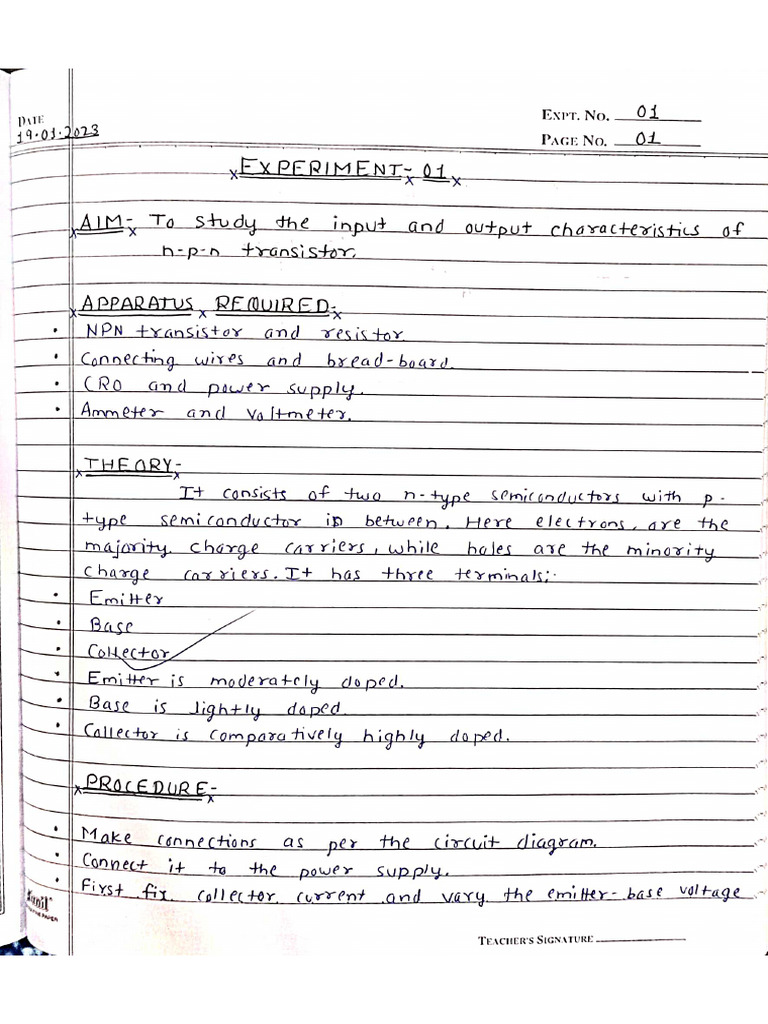 DATE
19.01.2023
EXPT. NO. 01
PAGE NO. 01
EXPERIMENT-01
AIM- To study the input and output characteristics of
n-p-n transistor.
APPARATUS REQUIRED-
• NPN transistor and resistor.
• Connecting wires and bread-board.
• CRO and power supply.
• Ammeter and voltmeter.
THEORY-
It consists of two n-type semiconductors with p-
type semiconductor in between. Here electrons, are the
majority charge carriers, while holes are the minority
charge carriers. It has three terminals:-
• Emitter
• Base
• Collector
• Emitter is moderately doped.
• Base is lightly doped.
• Collector is comparatively highly doped.
PROCEDURE-
• Make connections as per the circuit diagram.
• Connect it to the power supply.
• First fix collector current and vary the emitter-base voltage
TEACHER'S SIGNATURE